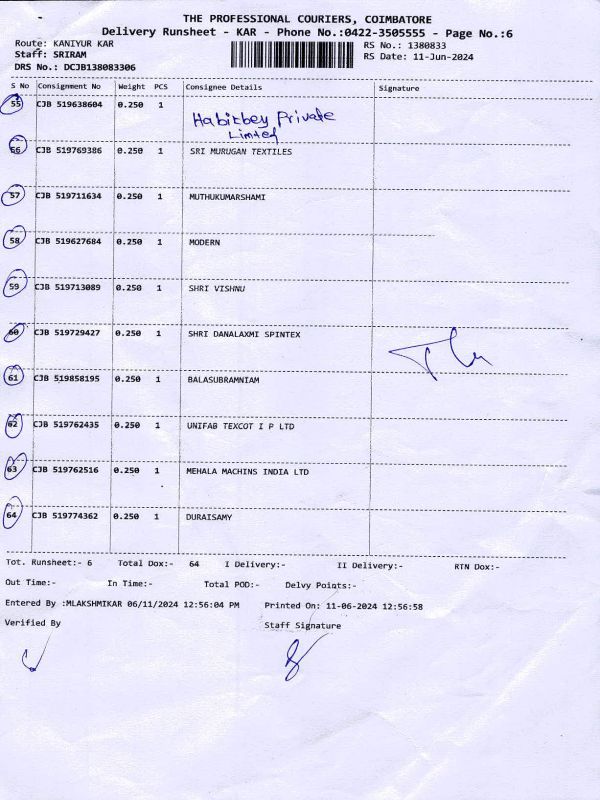 THE PROFESSIONAL COURIERS, COIMBATORE
Delivery Runsheet - KAR - Phone No.:0422-3505555 - Page No.:6
Route: KANIYUR KAR RS No.: 1380833
Staff: SRIRAM RS Date: 11-Jun-2024
DRS No.: DCJB138083306
S No Consignment No Weight PCS Consignee Details Signature
55 CJB 519638604 0.250 1
Habitbey Private
Limted
56 CJB 519769386 0.250 1 SRI MURUGAN TEXTILES
57 CJB 519711634 0.250 1 MUTHUKUMARSHAMI
58 CJB 519627684 0.250 1 MODERN
59 CJB 519713089 0.250 1 SHRI VISHNU
60 CJB 519729427 0.250 1 SHRI DANALAXMI SPINTEX
61 CJB 519858195 0.250 1 BALASUBRAMNIAM
62 CJB 519762435 0.250 1 UNIFAB TEXCOT I P LTD
63 CJB 519762516 0.250 1 MEHALA MACHINS INDIA LTD
64 CJB 519774362 0.250 1 DURAISAMY
Tot. Runsheet:- 6 Total Dox:- 64 I Delivery:- II Delivery:- RTN Dox:-
Out Time:- In Time:- Total POD:- Delvy Points:-
Entered By :MLAKSHMIKAR 06/11/2024 12:56:04 PM Printed On: 11-06-2024 12:56:58
Verified By Staff Signature